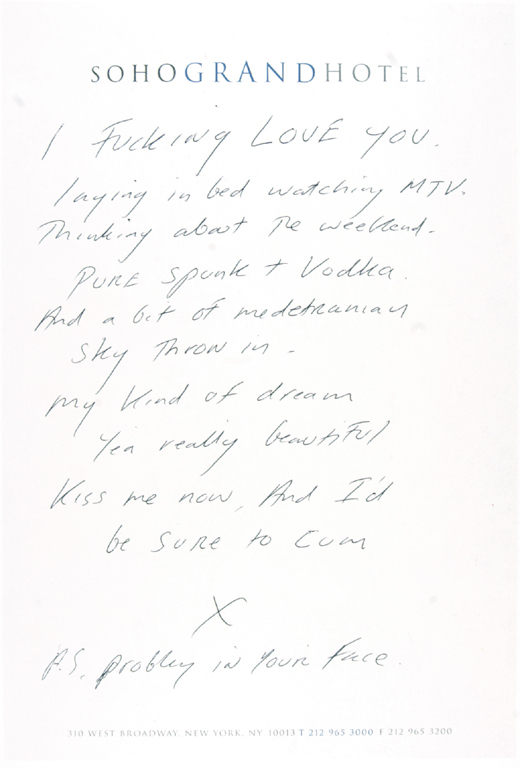 SOHOGRANDHOTEL
I Fucking LOVE you.
laying in bed watching MTV.
Thinking about The weekend.
PURE spunk + Vodka.
And a bit of medetranian
sky Throw in.
my kind of dream
Yea really beautiful
Kiss me now, And I'd
be SURE to cum
X
P.S. probley in your face.
310 WEST BROADWAY, NEW YORK, NY 10013 T 212 965 3000 F 212 965 3200